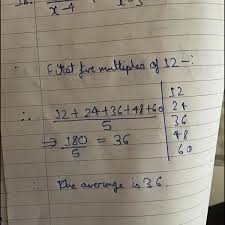 x-4
First five multiples of 12 -:
∴ 12 + 24 + 36 + 48 + 60
5
⇒ 180/5 = 36
12
24
36
48
60
∴ The average is 36.